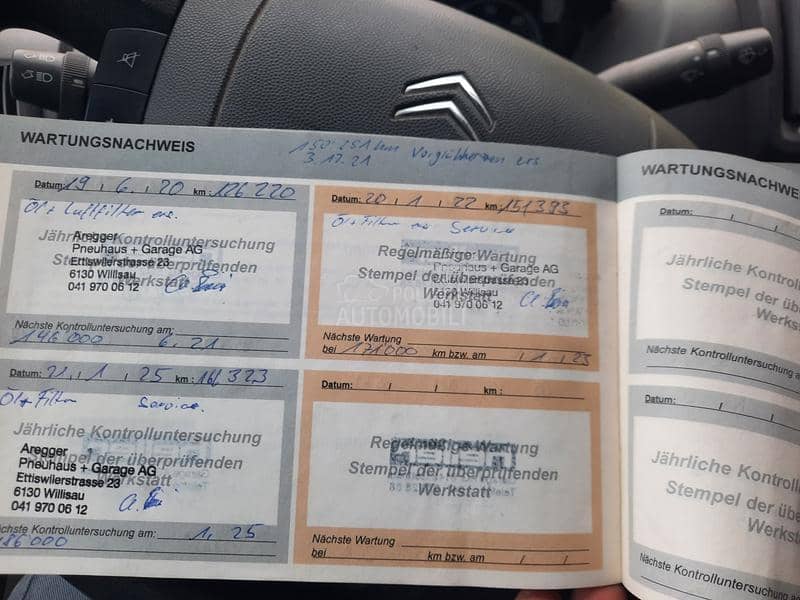 WARTUNGSNACHWEIS
150.251 km Vorglühkerzen ers.
3.12.21
Datum: 19 , 6. , 20 km: 126 220
Öl + Luftfilter ers.
Jährliche Kontrolluntersuchung
Stempel der überprüfenden
Werkstatt
Aregger
Pneuhaus + Garage AG
Ettiswilerstrasse 23
6130 Willisau
041 970 06 12
Nächste Kontrolluntersuchung am:
146 000 6. 21
Datum: 20 , 1 , 22 km: 151393
Öl + Filter Service
Regelmäßige Wartung
Stempel der überprüfenden
Werkstatt
Pneuhaus + Garage AG
6130 Willisau
041 970 06 12
Nächste Wartung
bei 171000 km bzw. am / 1 / 23
Datum: 21 , 1 , 25 km:
Öl + Filter Service.
Jährliche Kontrolluntersuchung
Stempel der überprüfenden
Werkstatt
Aregger
Pneuhaus + Garage AG
Ettiswilerstrasse 23
6130 Willisau
041 970 06 12
Nächste Kontrolluntersuchung am:
186000 1. 25
Datum: / / km:
Regelmäßige Wartung
Stempel der überprüfenden
Werkstatt
Nächste Wartung
bei km bzw. am / /
WARTUNGSNACHWE
Datum: / /
Jährliche Kontrol
Stempel der übe
Werkst
Nächste Kontrolluntersuchung a
Datum: / /
Jährliche Kontrol
Stempel der übe
Werkst
Nächste Kontrolluntersuchung
POLOVNI
AUTOMOBILI